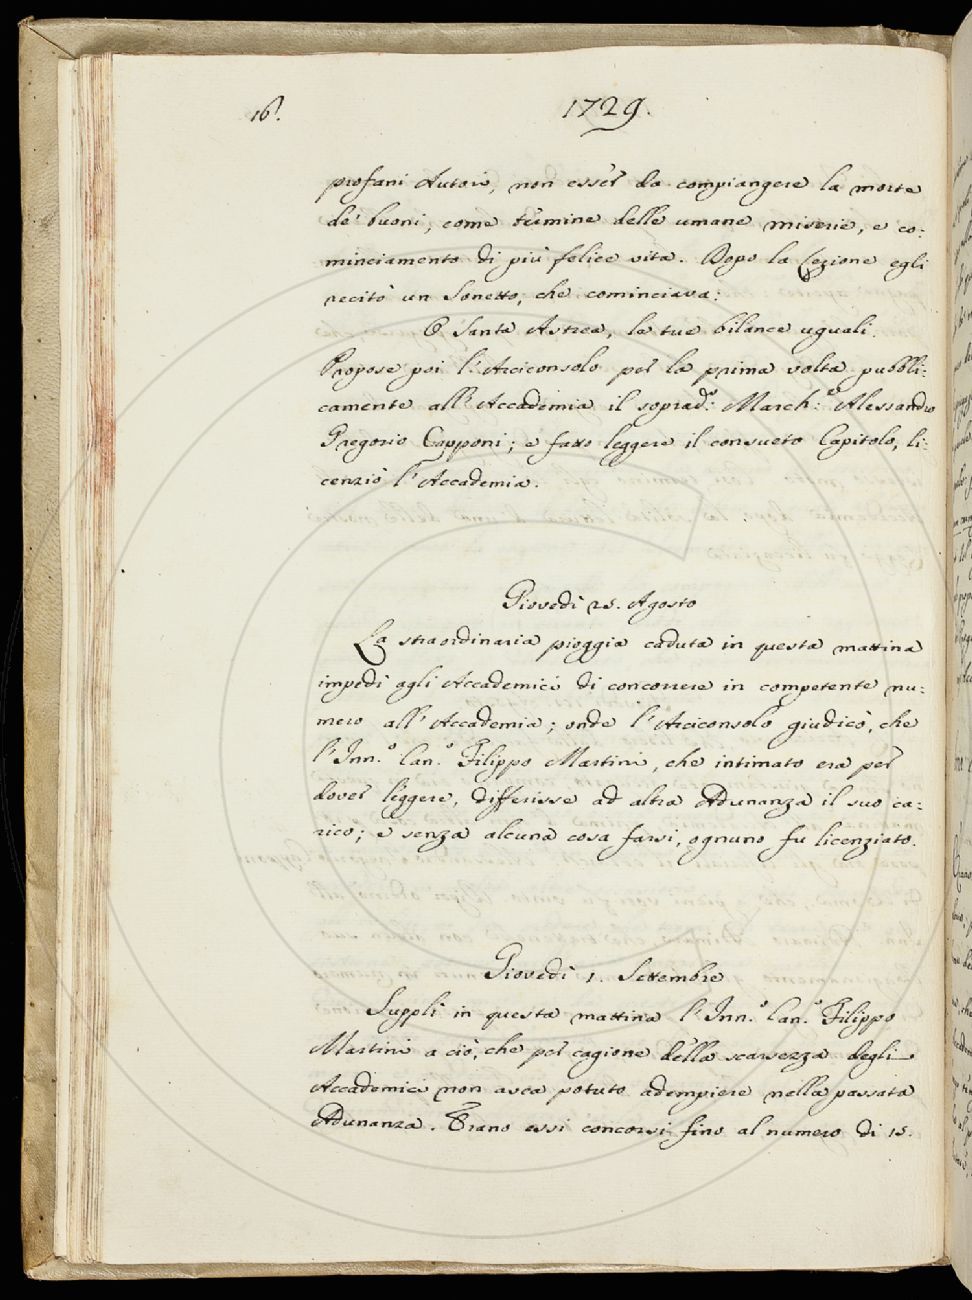 16.
1729.
profani Autori, non esser da compiangere la morte
de' buoni, come termine delle umane miserie, e co:
minciamento di più felice vita. Dopo la Lezione egli
recitò un Sonetto, che cominciava:
O Santa Astrea, le tue bilance uguali.
Propose poi l'Arciconsolo per la prima volta pubbli:
camente all'Accademia il soprad.º March.º Alessandro
Gregorio Capponi; e fatto leggere il consueto Capitolo, li:
cenziò l'Accademia.
Giovedì 25. Agosto
La straordinaria pioggia caduta in questa mattina
impedì agli Accademici di concorrere in competente nu:
mero all'Accademia; onde l'Arciconsolo giudicò, che
l'Inn.º Can.º Filippo Martini, che intimato era per
dover leggere, differisse ad altra Adunanza il suo ca:
rico; e senza alcuna cosa farsi, ognuno fu licenziato.
Giovedì 1. Settembre
Supplì in questa mattina l'Inn.º Can.º Filippo
Martini a ciò, che per cagione della scarsezza degli
Accademici non avea potuto adempiere nella passata
Adunanza. Erano essi concorsi fino al numero di 15.